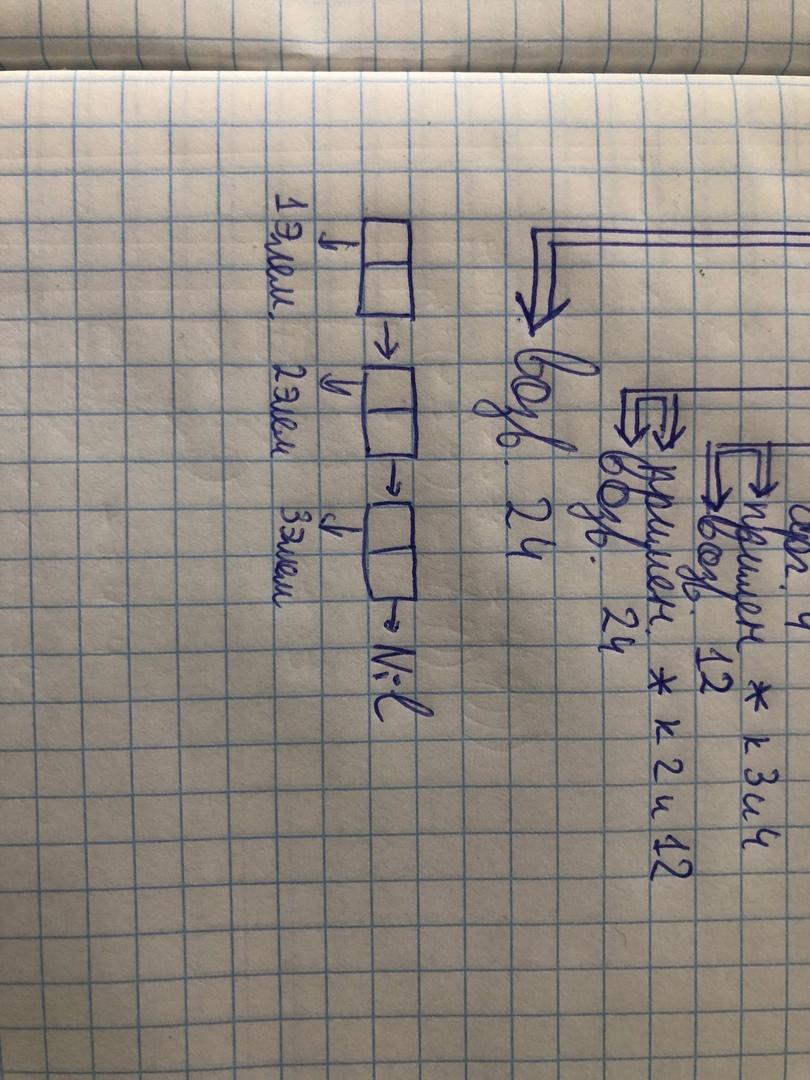 арг. 4
примен * к 3 и 4
возв. 12
примен. * к 2 и 12
возв. 24
возв. 24
Nil
1 элем. 2 элем 3 элем